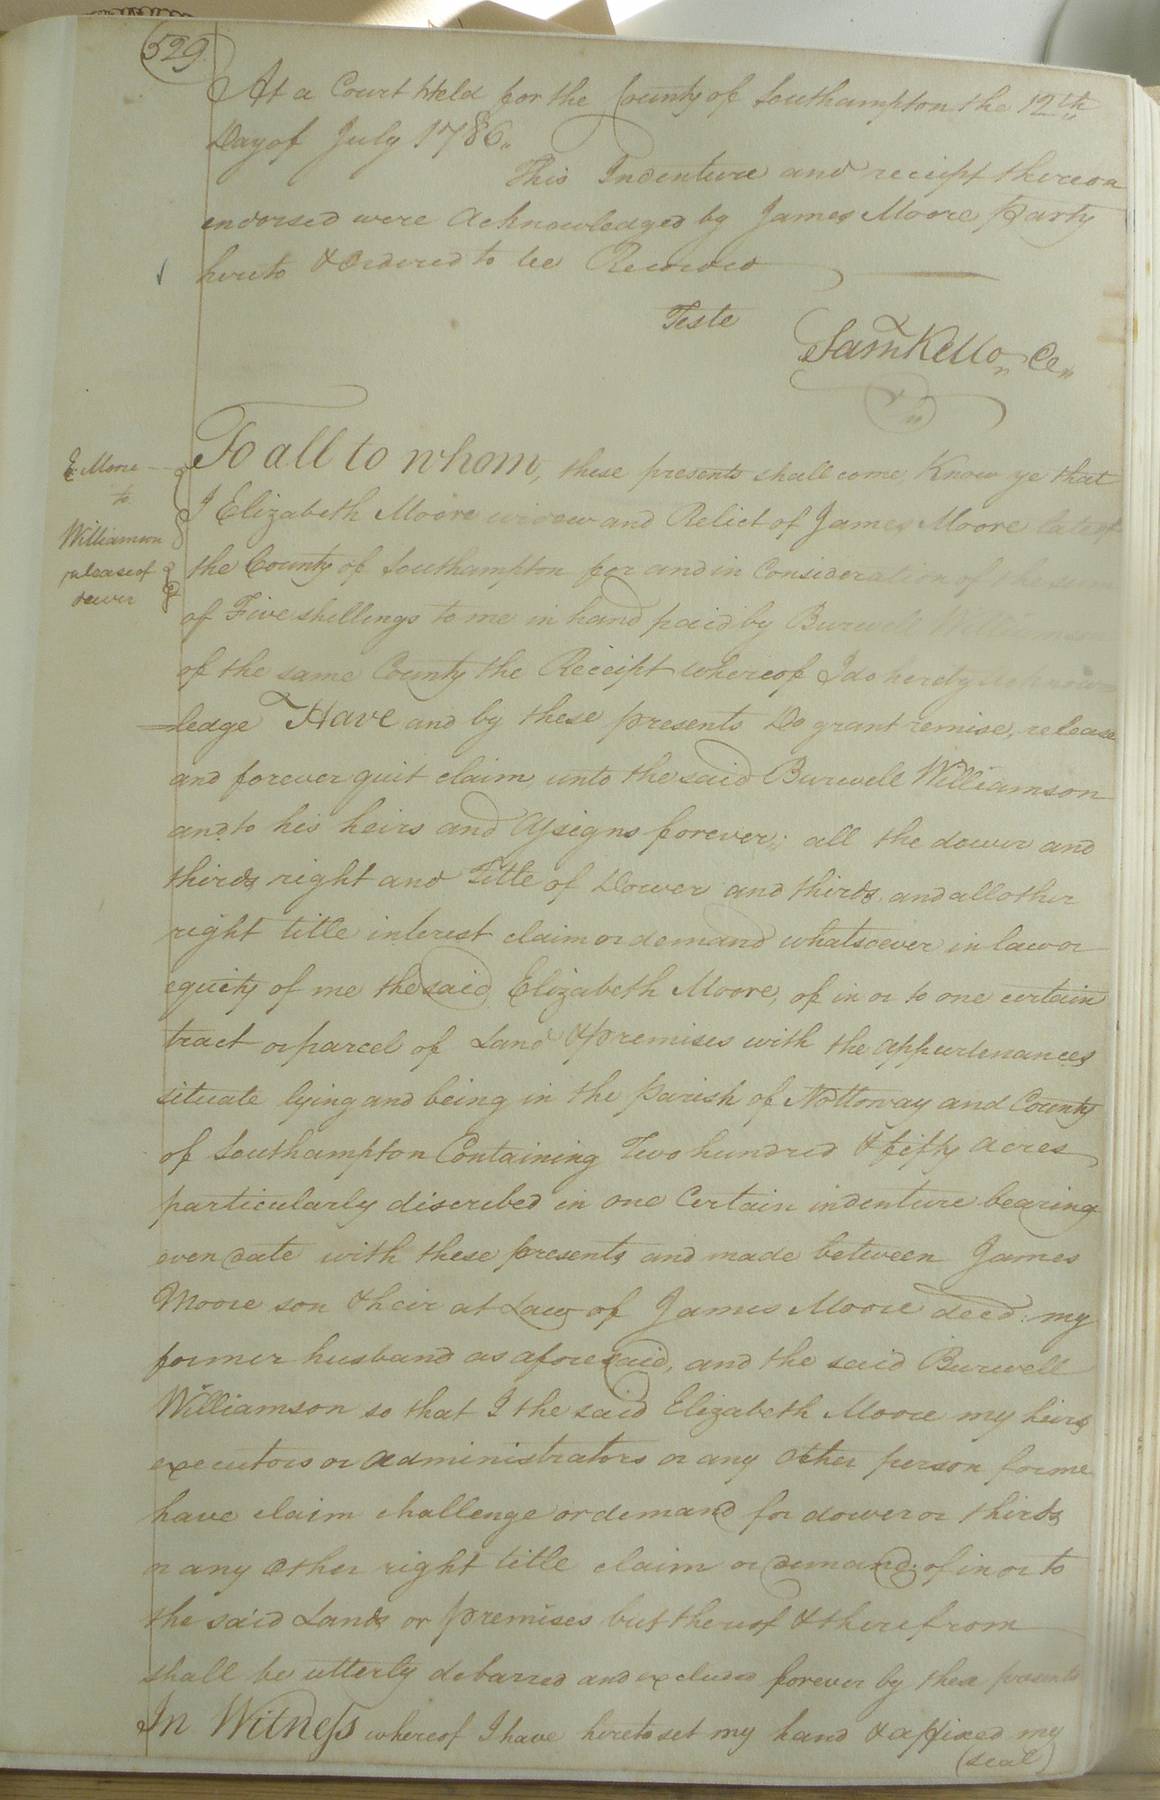 529.
At a Court Held for the County of Southampton the 12th
Day of July 1786.
This Indenture and receipt thereon
endorsed were Acknowledged by James Moore party
hereto & Ordered to be Recorded
Teste
Saml Kello Ce
E. Moore
to
Williamson
release of
dower
To all to whom, these presents shall come, Know ye that
I Elizabeth Moore widow and Relict of James Moore late of
the County of Southampton for and in Consideration of the sum
of Five shillings to me in hand paid by Burwell Williamson
of the same County the Receipt whereof I do hereby acknow
=ledge Have and by these presents Do grant remise, release
and forever quit claim, unto the said Burwell Williamson
and to his heirs and Assigns forever; all the dower and
thirds right and Title of Dower and thirds and all other
right title interest claim or demand whatsoever in law or
equity of me the said Elizabeth Moore, of in or to one certain
tract or parcel of Land & premises with the appurtenances
situate lying and being in the parish of Nottoway and County
of Southampton Containing Two hundred & fifty acres
particularly discribed in one Certain indenture bearing
even date with these presents and made between James
Moore son & heir at Law of James Moore deed: my
former husband as aforesaid, and the said Burwell
Williamson so that I the said Elizabeth Moore my heirs
executors or administrators or any other person for me
have claim challenge or demand for dower or thirds
or any other right title claim or demand of in or to
the said Lands or premises but thereof & therefrom
shall be utterly debarred and excluded forever by these presents
In Witness whereof I have hereto set my hand & affixed my
(seal)